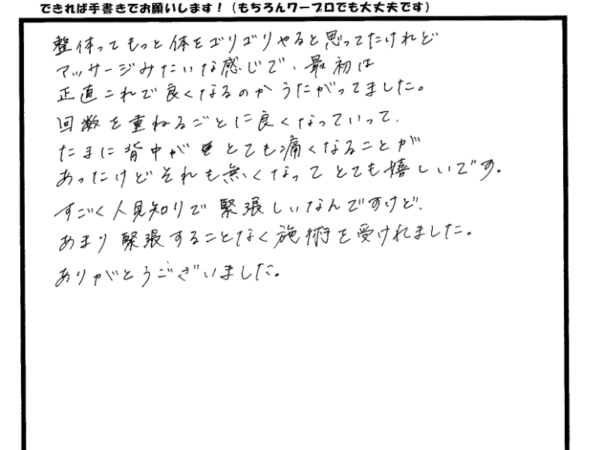 できれば手書きでお願いします！（もちろんワープロでも大丈夫です）
整体ってもっと体をゴリゴリやると思ってたけれど
アッサージみたいな感じで、最初は
正直これで良くなるのかうたがってました。
回数を重ねるごとに良くなっていって、
たまに背中がとても痛くなることが
あったけどそれも無くなってとても嬉しいです。
すごく人見知りで緊張しいなんですけど、
あまり緊張することなく施術を受けれました。
ありがとうございました。